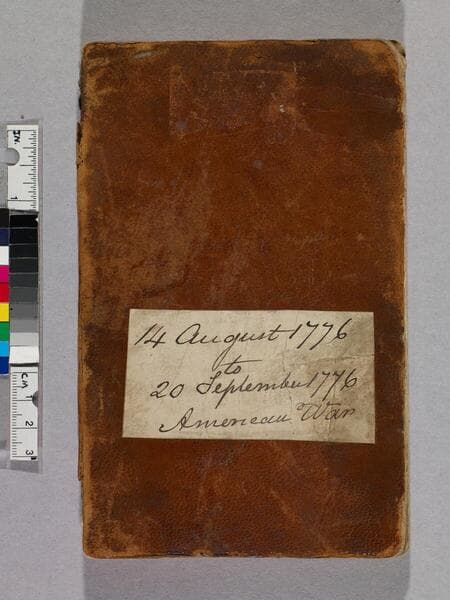 14 August 1776
to
20 September 1776
American War
IN.
1
cm
1
2
3